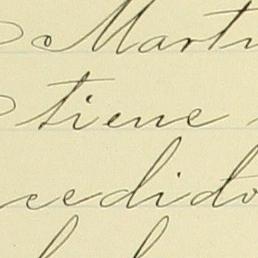 Marti
tiene
cedido